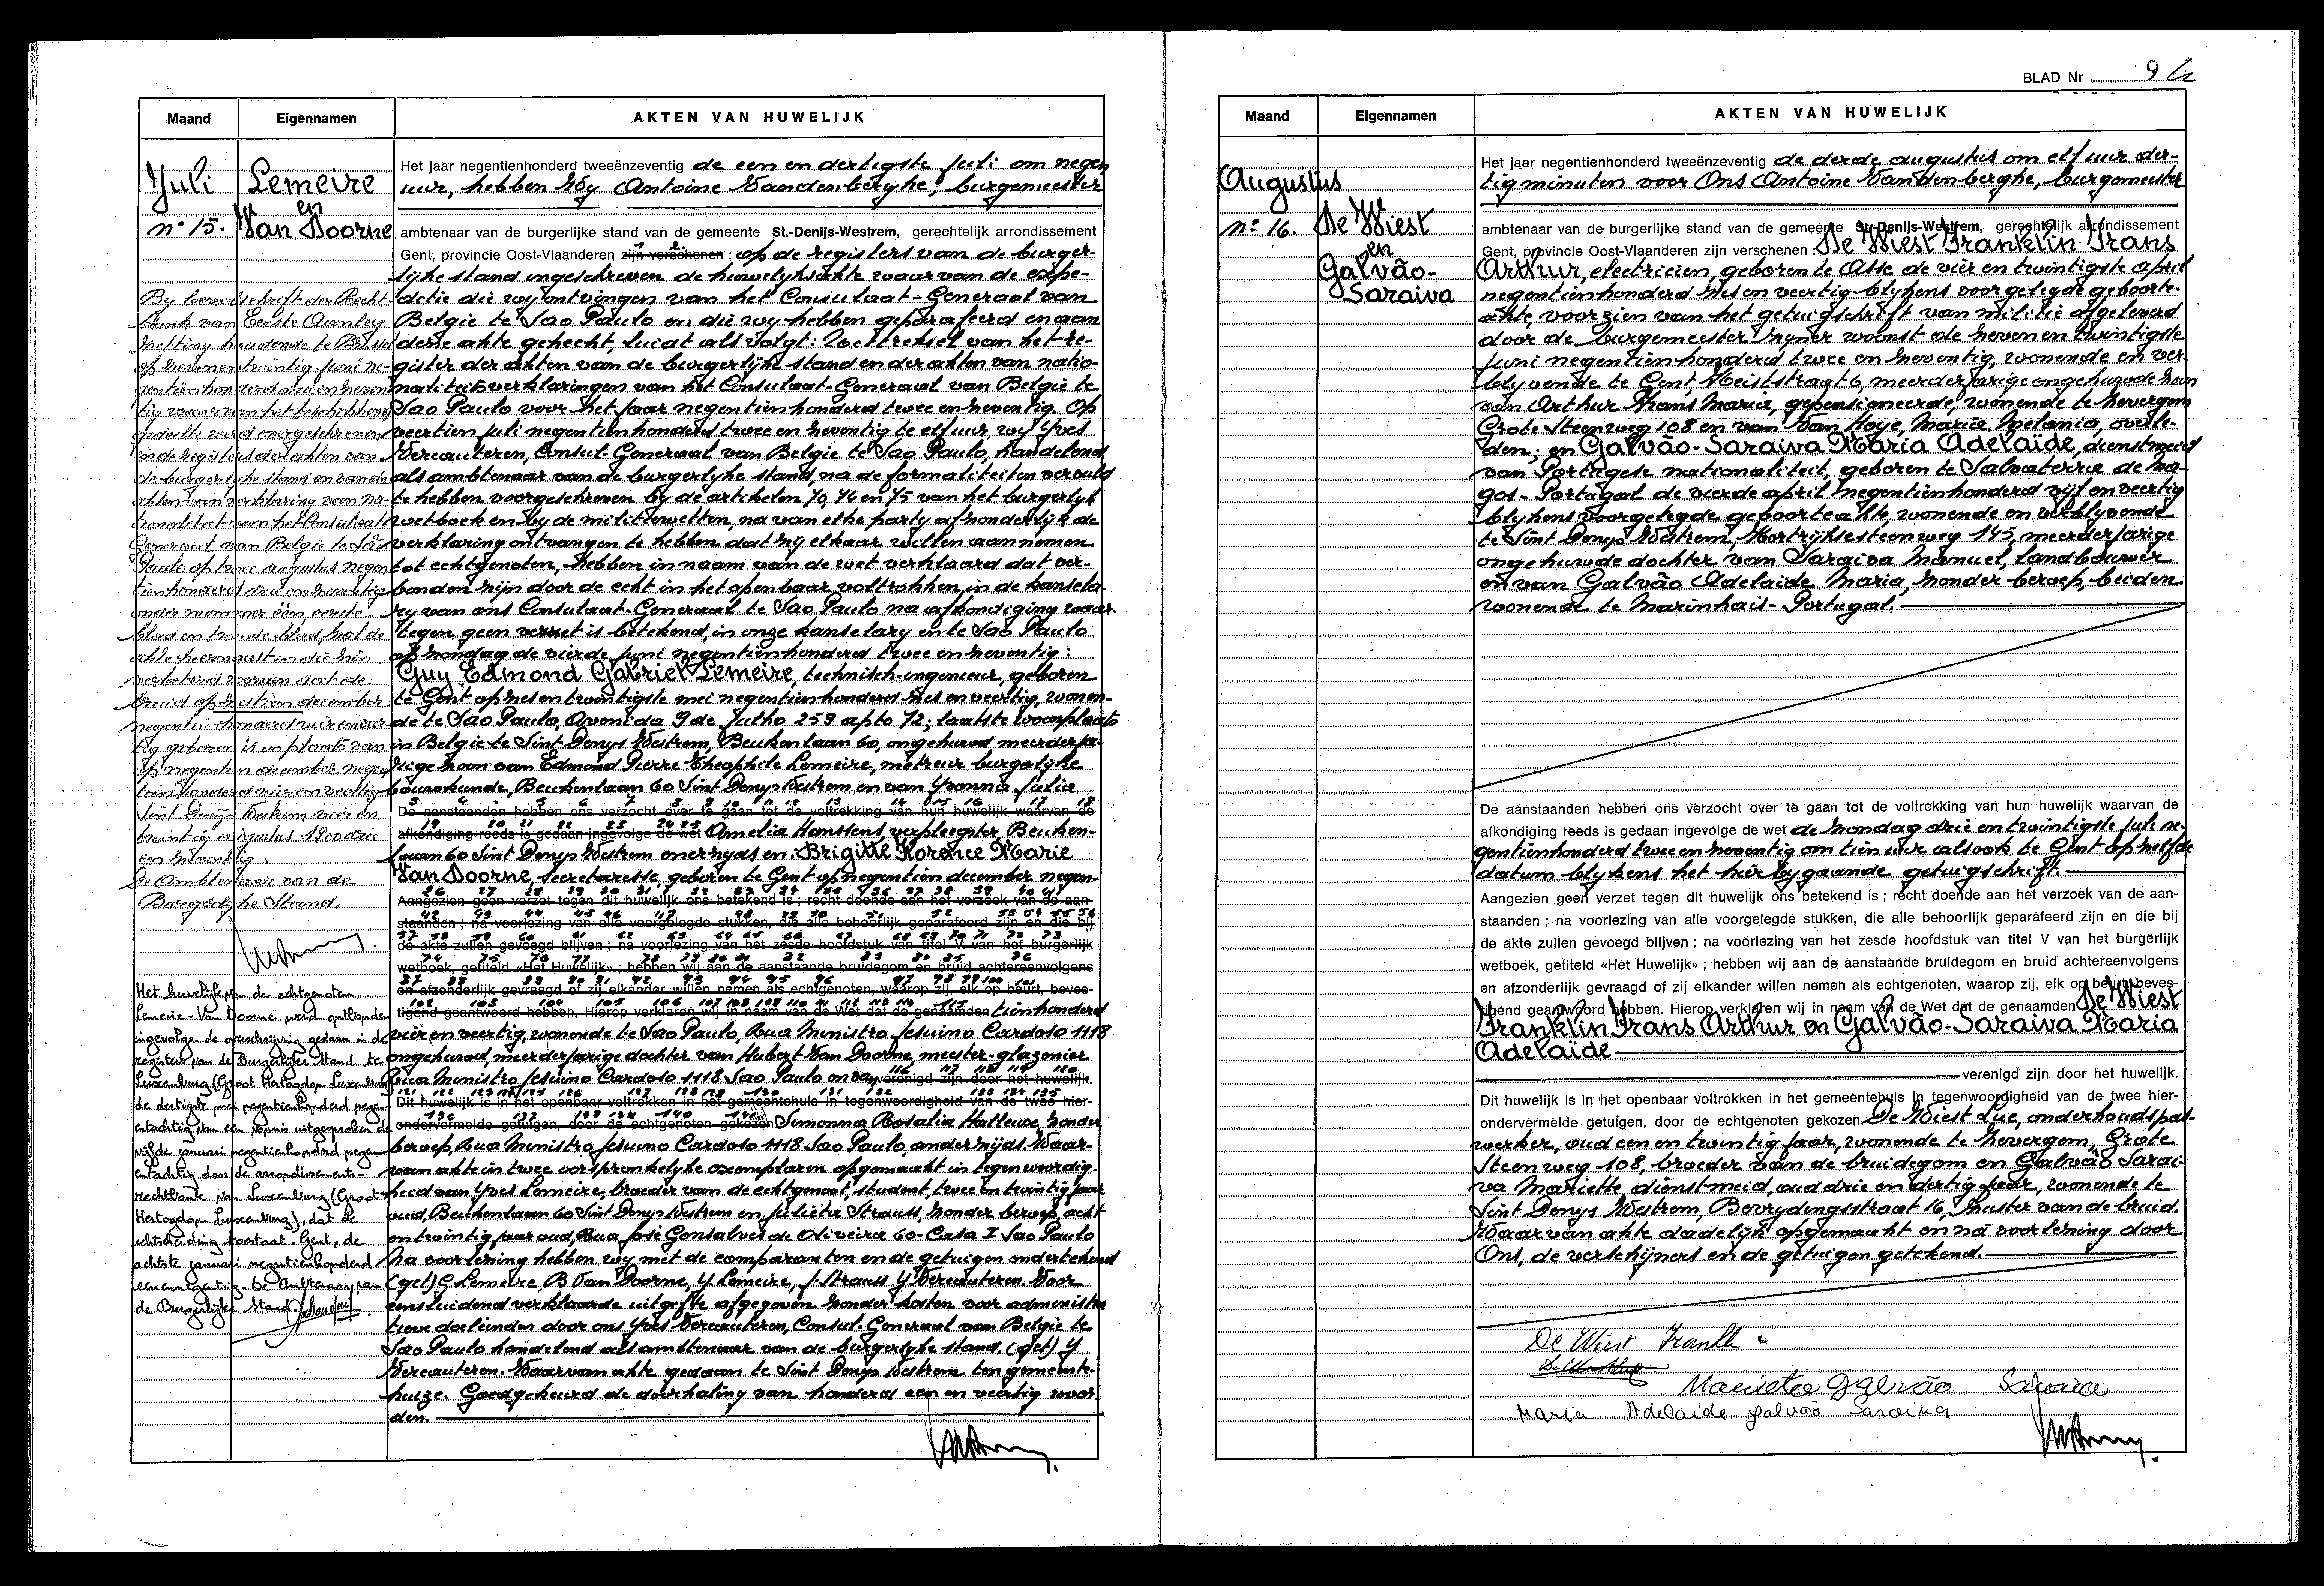 Maand
Eigennamen
AKTEN VAN HUWELIJK
Juli
n° 15.
Lemeire
en
Van Doorne
Het jaar negentienhonderd tweeënzeventig de een en dertigste juli om negen
uur, hebben Wij Antoine Vandenberghe, burgemeester
ambtenaar van de burgerlijke stand van de gemeente St.-Denijs-Westrem, gerechtelijk arrondissement
Gent, provincie Oost-Vlaanderen zijn verschenen : op de registers van de burger-
lijke stand ingeschreven de huwelijksakte waarvan de expe-
ditie die wij ontvingen van het Consulaat-Generaal van
België te Sao Paulo en die wij hebben geparafeerd en aan
deze akte gehecht, luidt als volgt: Uittreksel van het re-
gister der akten van de burgerlijke stand en der akten van natio-
naliteitsverklaringen van het Consulaat-Generaal van België te
Sao Paulo voor het jaar negentienhonderd twee en zeventig. Op
veertien juli negentienhonderd twee en zeventig te elf uur, wij Yves
Vereauteren, Consul-Generaal van België te Sao Paulo, handelend
als ambtenaar van de burgerlijke stand, na de formaliteiten vervuld
te hebben voorgeschreven bij de artikelen 70, 74 en 75 van het burgerlijk
wetboek en bij de militiewetten, na van elke partij afzonderlijk de
verklaring ontvangen te hebben dat zij elkaar willen aannemen
tot echtgenoten, hebben in naam van de wet verklaard dat ver-
bonden zijn door de echt in het openbaar voltrokken, in de kansela-
rij van ons Consulaat-Generaal te Sao Paulo na afkondiging waar-
tegen geen verzet is betekend, in onze kanselary en te Sao Paulo
op zondag de vierde juni negentienhonderd twee en zeventig:
Guy Edmond Gabriel Lemeire, technisch-ingenieur, geboren
te Gent op zes en twintigste mei negentienhonderd zes en veertig, wonen-
de te Sao Paulo, Avenida 9 de Julho 259 apto 72; laatste woonplaats
in België te Sint Denys Westrem, Beukenlaan 60, ongehuwd meerderja-
rige zoon van Edmond Pierre Théophile Lemeire, metreur burgerlijke
bouwkunde, Beukenlaan 60 Sint Denys Westrem en van Yvonna Julia
De aanstaanden hebben ons verzocht over te gaan tot de voltrekking van hun huwelijk waarvan de
afkondiging reeds is gedaan ingevolge de wet Amelia Hanssens, verpleegster, Beuken-
laan 60 Sint Denys Westrem enerzijds en: Brigitte Florence Marie
Van Doorne, secretaresse, geboren te Gent op negentien december negen-
Aangezien geen verzet tegen dit huwelijk ons betekend is ; recht doende aan het verzoek van de aan-
staanden ; na voorlezing van alle voorgelegde stukken, die alle behoorlijk geparafeerd zijn en die bij
de akte zullen gevoegd blijven ; na voorlezing van het zesde hoofdstuk van titel V van het burgerlijk
wetboek, getiteld «Het Huwelijk» ; hebben wij aan de aanstaande bruidegom en bruid achtereenvolgens
en afzonderlijk gevraagd of zij elkander willen nemen als echtgenoten, waarop zij, elk op beurt, beves-
tigend geantwoord hebben. Hierop verklaren wij in naam van de Wet dat de genaamden tienhonderd
vier en veertig, wonende te Sao Paulo, Rua Ministro Jesuino Cardoso 1118
ongehuwd, meerderjarige dochter van Hubert Van Doorne, meester-glazenier
Rua Ministro Jesuino Cardoso 1118 Sao Paulo en van verenigd zijn door het huwelijk.
Dit huwelijk is in het openbaar voltrokken in het gemeentehuis in tegenwoordigheid van de twee hier-
ondervermelde getuigen, door de echtgenoten gekozen Simonna Rosalia zonder
beroep, Rua Ministro Jesuino Cardoso 1118 Sao Paulo, anderzijds. Waar-
van akte in twee oorspronkelyke exemplaren opgemaakt in tegenwoordig-
heid van Yves Lemeire, broeder van de echtgenoot, student, twee en twintig jaar
oud, Beukenlaan 60 Sint Denys Westrem en Juliëta Strauss, zonder beroep, acht
en twintig jaar oud, Rua José Gonsalves de Oliveira 60-Casa I Sao Paulo
Na voorlezing hebben wij met de comparanten en de getuigen ondertekend
(get) G Lemeire, B. Van Doorne, Y Lemeire, J. Strauss Y Vereauteren. Voor
eensluidend verklaarde uitgifte afgegeven zonder kosten voor administra
tieve doeleinden door ons Yves Vereauteren, Consul-Generaal van België te
Sao Paulo handelend als ambtenaar van de burgerlijke stand (get) Y
Vereauteren. Waarvan akte gedaan te Sint Denys Westrem ten gemeente-
huize. Goedgekeurd de doorhaling van honderd een en veertig woor-
den.
By bevelschrift der Recht
bank van Eerste Aanleg
zitting houdende te Brussel
op zes en twintig juni ne-
gentienhonderd drie en zeven
tig waarvan het beschikkend
gedeelte werd overgeschreven
in de registers der akten van
de burgerlijke stand en van de
akten van verklaring van na-
tionaliteit van het Consulaat
Generaal van België te São
Paulo op twee augustus negen
tienhonderd drie en zeventig
onder nummer één, eerste
blad en tweede blad zal de
akte hiernaast in die zin
verbeterd worden dat de
bruid op zestien december
negentienhonderd vier en veer
tig geboren is in plaats van
op negentien december negen
tienhonderd vier en veertig
Sint Denijs Westrem vier en
twintig augustus 1900 drie
en zeventig.
De Ambtenaar van de
Burgerlijke Stand,
Het huwelijk van de echtgenoten
Lemeire - Van Doorne werd ontbonden
ingevolge de overschrijving gedaan in de
registers van de Burgerlijke Stand te
Luxemburg (Groot Hertogdom Luxemburg
de dertigste mei negentienhonderd negen-
entachtig van een vonnis uitgesproken de
vijfde januari negentienhonderd negen-
entachtig door de arrondissements-
rechtbank van Luxemburg (Groot-
Hertogdom Luxemburg), dat de
echtscheiding toestaat. Gent, de
achtste januari negentienhonderd
eenennegentig. De Ambtenaar van
de Burgerlijke Stand,
BLAD Nr 9
Maand
Eigennamen
AKTEN VAN HUWELIJK
Augustus
n° 16.
De Wiest
en
Galvão-
Saraiva
Het jaar negentienhonderd tweeënzeventig de derde augustus om elf uur der-
tig minuten voor Ons Antoine Vandenberghe, burgemeester
ambtenaar van de burgerlijke stand van de gemeente St.-Denijs-Westrem, gerechtelijk arrondissement
Gent, provincie Oost-Vlaanderen zijn verschenen : De Wiest Franklin Frans
Arthur, electricien, geboren te Asse de vier en twintigste april
negentienhonderd zes en veertig blijkens voorgelegde geboorte-
akte, voorzien van het getuigschrift van militie afgeleverd
door de burgemeester zijner woonst de zeven en twintigste
juni negentienhonderd twee en zeventig, wonende en ver-
blijvende te Gent, Meistraat 6, meerderjarige ongehuwde zoon
van Arthur Frans Marie, gepensioneerde, wonende te Zevergem
Grote Steenweg 108 en van Van Hoye, Maria Melania, overle-
den; en Galvão-Saraiva Maria Adelaïde, dienstmeid
van Portugese nationaliteit, geboren te Salvaterra de Ma-
gos-Portugal de vierde april negentienhonderd vijf en veertig
blijkens voorgelegde geboorteakte wonende en verblijvende
te Sint Denys Westrem, Kortrijksesteenweg 145, meerderjarige
ongehuwde dochter van Saraiva Manuel, landbouwer
en van Galvão Adelaïde Maria, zonder beroep, beiden
wonende te Marinhais-Portugal.
De aanstaanden hebben ons verzocht over te gaan tot de voltrekking van hun huwelijk waarvan de
afkondiging reeds is gedaan ingevolge de wet de zondag drie en twintigste juli ne-
gentienhonderd twee en zeventig om tien uur alsook te Gent op zelfde
datum blijkens het hierbijgaande getuigschrift.
Aangezien geen verzet tegen dit huwelijk ons betekend is ; recht doende aan het verzoek van de aan-
staanden ; na voorlezing van alle voorgelegde stukken, die alle behoorlijk geparafeerd zijn en die bij
de akte zullen gevoegd blijven ; na voorlezing van het zesde hoofdstuk van titel V van het burgerlijk
wetboek, getiteld «Het Huwelijk» ; hebben wij aan de aanstaande bruidegom en bruid achtereenvolgens
en afzonderlijk gevraagd of zij elkander willen nemen als echtgenoten, waarop zij, elk op beurt, beves-
tigend geantwoord hebben. Hierop verklaren wij in naam van de Wet dat de genaamden De Wiest
Franklin Frans Arthur en Galvão-Saraiva Maria
Adelaïde
verenigd zijn door het huwelijk.
Dit huwelijk is in het openbaar voltrokken in het gemeentehuis in tegenwoordigheid van de twee hier-
ondervermelde getuigen, door de echtgenoten gekozen De Wiest Luc, onderhoudspat-
werker, oud een en twintig jaar, wonende te Zevergem, Grote
Steenweg 108, broeder van de bruidegom en Galvão Sarai-
va Mariette dienstmeid, oud drie en dertig jaar, wonende te
Sint Denys Westrem, Bevrydingsstraat 16, zuster van de bruid.
Waarvan akte dadelijk opgemaakt en na voorlezing door
Ons, de verschijners en de getuigen getekend.
De Wiest Franklin
Marieta Galvão Saraiva
Maria Adelaide Galvão Saraiva